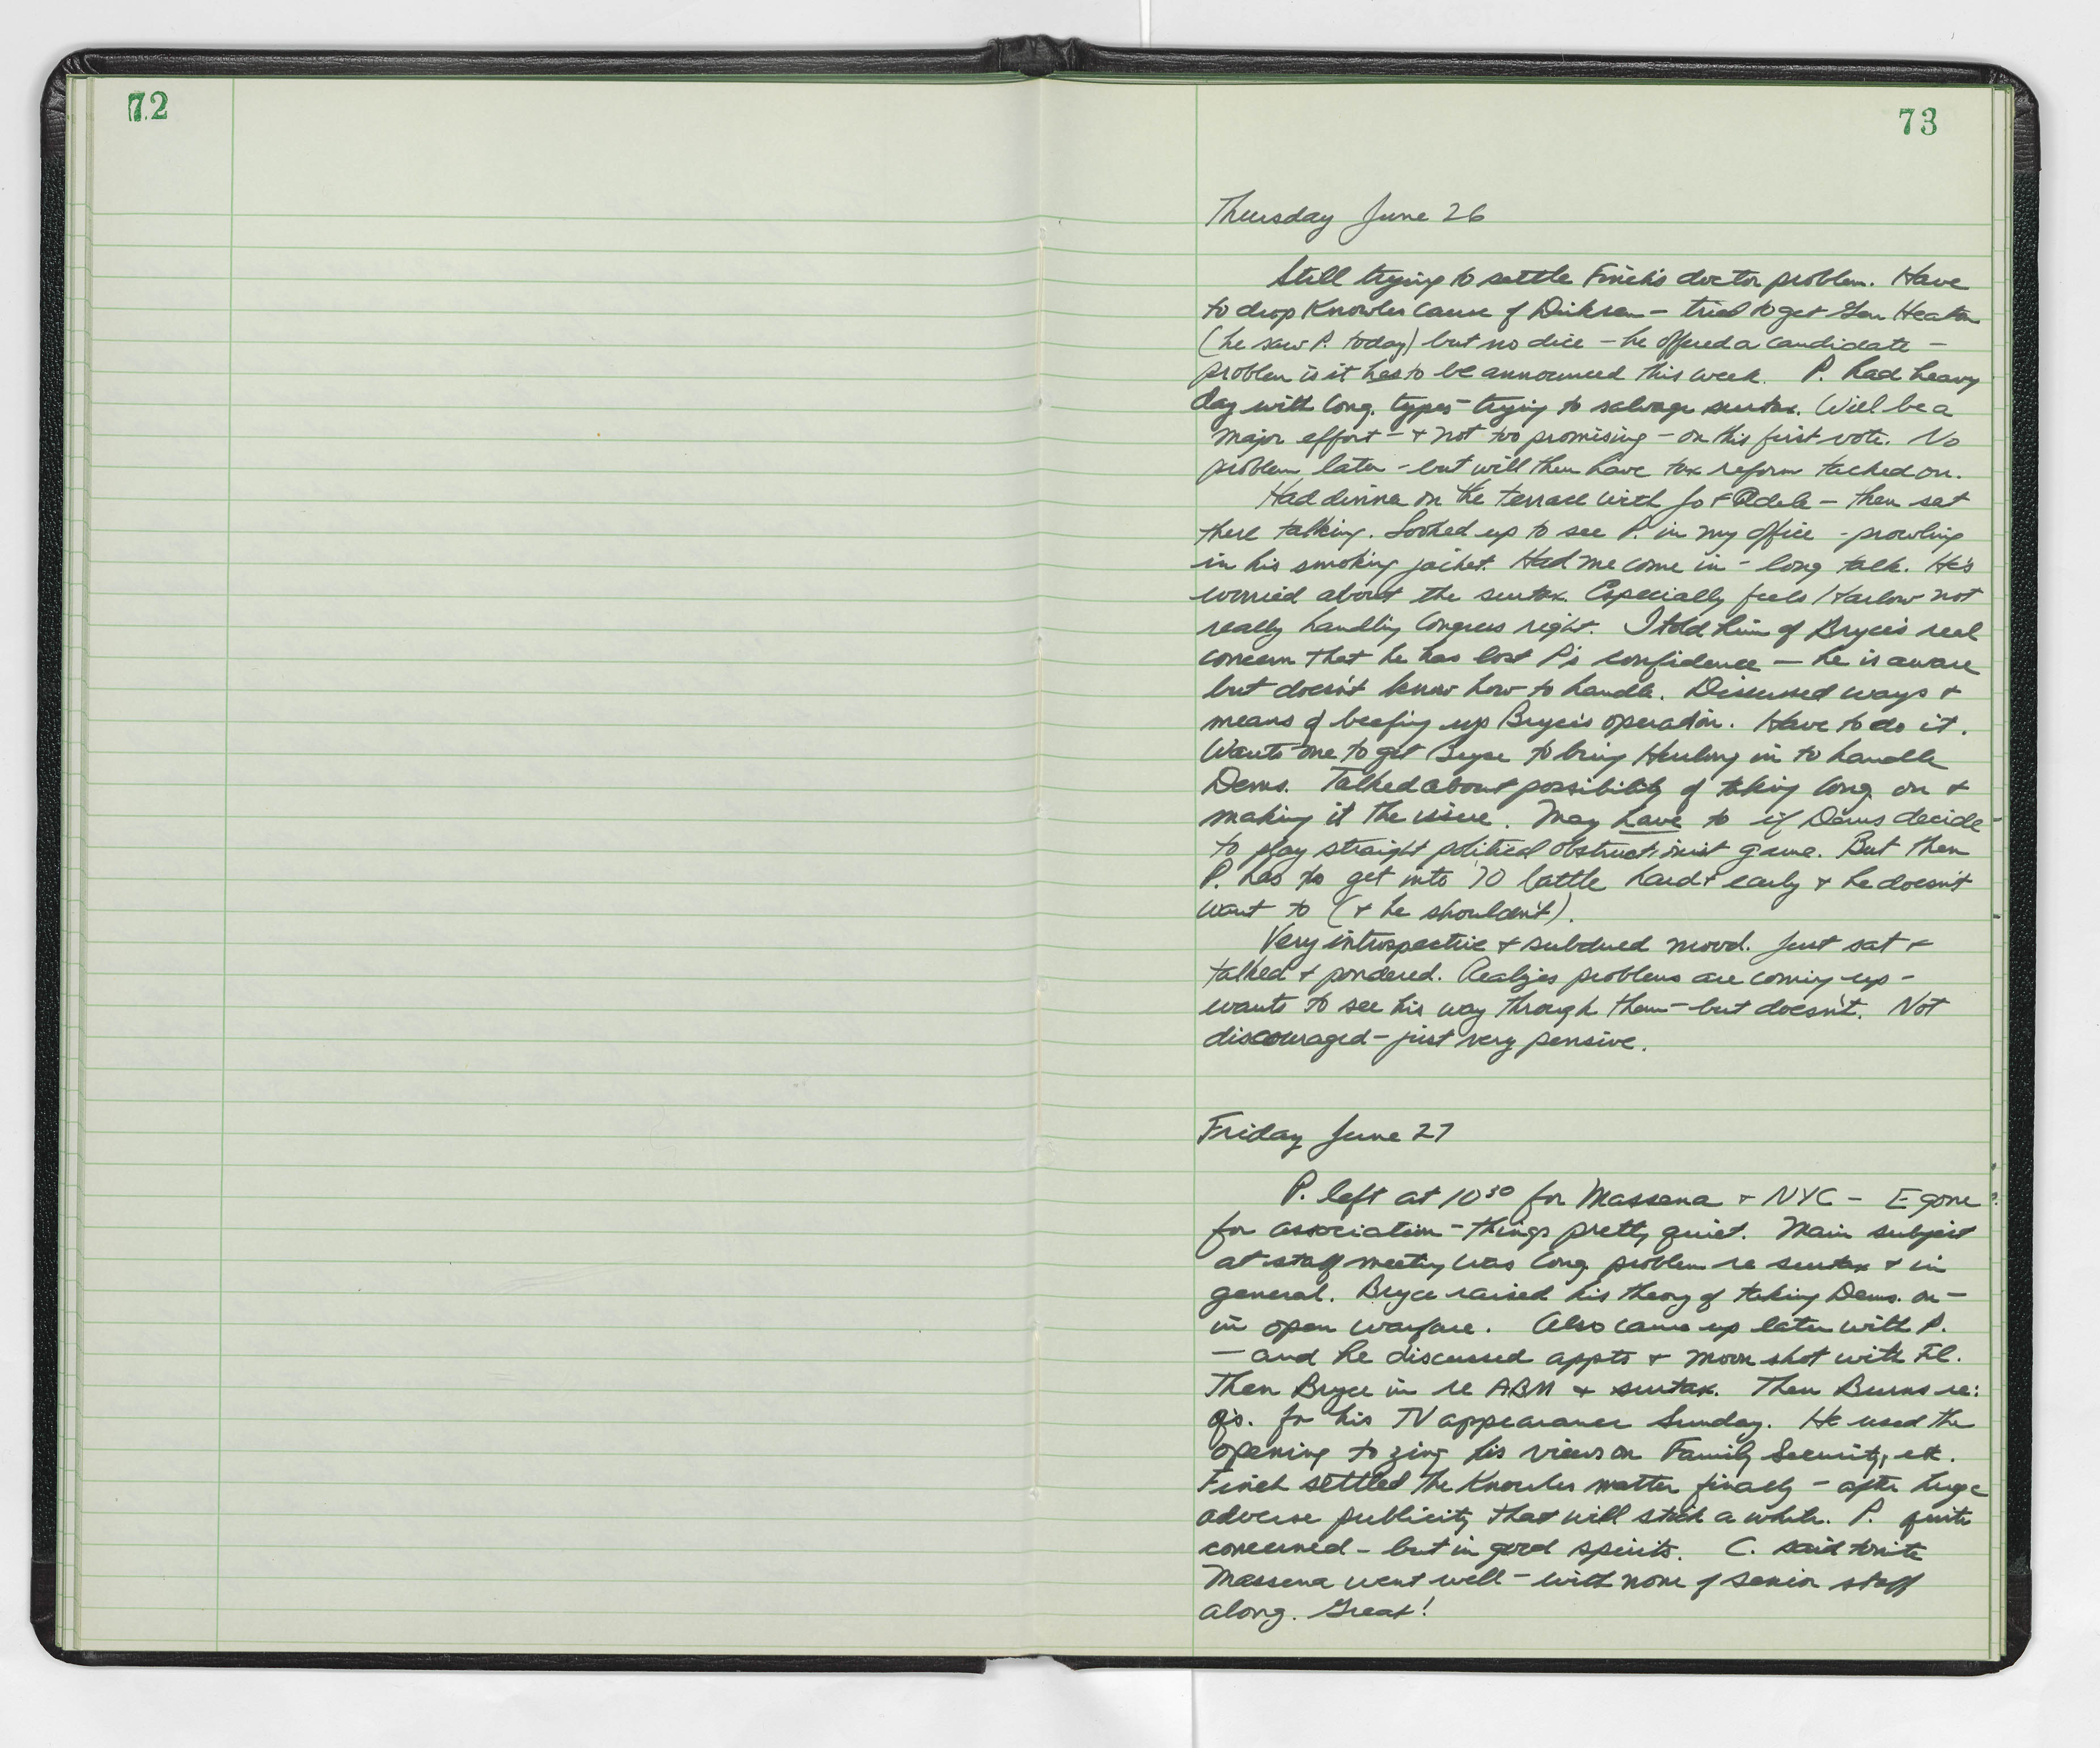 72
73
Thursday June 26
Still trying to settle Finch's doctor problem. Have
to drop Knowles cause of Dirksen - tried to get Gen Heaton
(he saw P. today) but no dice - he offered a candidate -
problem is it has to be announced this week. P. had heavy
day with Cong. types - trying to salvage surtax. Will be a
major effort - + not too promising - on this first vote. No
problem later - but will then have tax reform tacked on.
Had dinner on the terrace with Jo + Adele - then sat
there talking. Looked up to see P. in my office - prowling
in his smoking jacket. Had me come in - long talk. He's
worried about the surtax. Especially feels Harlow not
really handling Congress right. I told him of Bryce's real
concern that he has lost P's confidence - he is aware
but doesn't know how to handle. Discussed ways +
means of beefing up Bryce's operation. Have to do it.
Wants me to get Bryce to bring in to handle
Dems. Talked about possibility of taking Cong. on +
making it the issue. May have to if Dems decide
to play straight political obstructionist game. But then
P. has to get into '70 battle hard + early + he doesn't
want to (+ he shouldn't).
Very introspective + subdued mood. Just sat +
talked + pondered. Realizes problems are coming up -
wants to see his way through them - but doesn't. Not
discouraged - just very pensive.
Friday June 27
P. left at 10 30 for Massena + NYC - E gone
for association - things pretty quiet. Main subject
at staff meeting was Cong. problem re surtax + in
general. Bryce raised his theory of taking Dems. on -
in open warfare. Also came up later with P.
- and he discussed appts + moon shot with Fl.
Then Bryce in re ABM + surtax. Then Burns re:
Q's. for his TV appearance Sunday. He used the
opening to zing his views on Family Security, etc.
Finch settled the Knowles matter finally - after huge
adverse publicity that will stick a while. P. quite
concerned - but in good spirits. C. said tonite
Massena went well - with none of senior staff
along. Great!